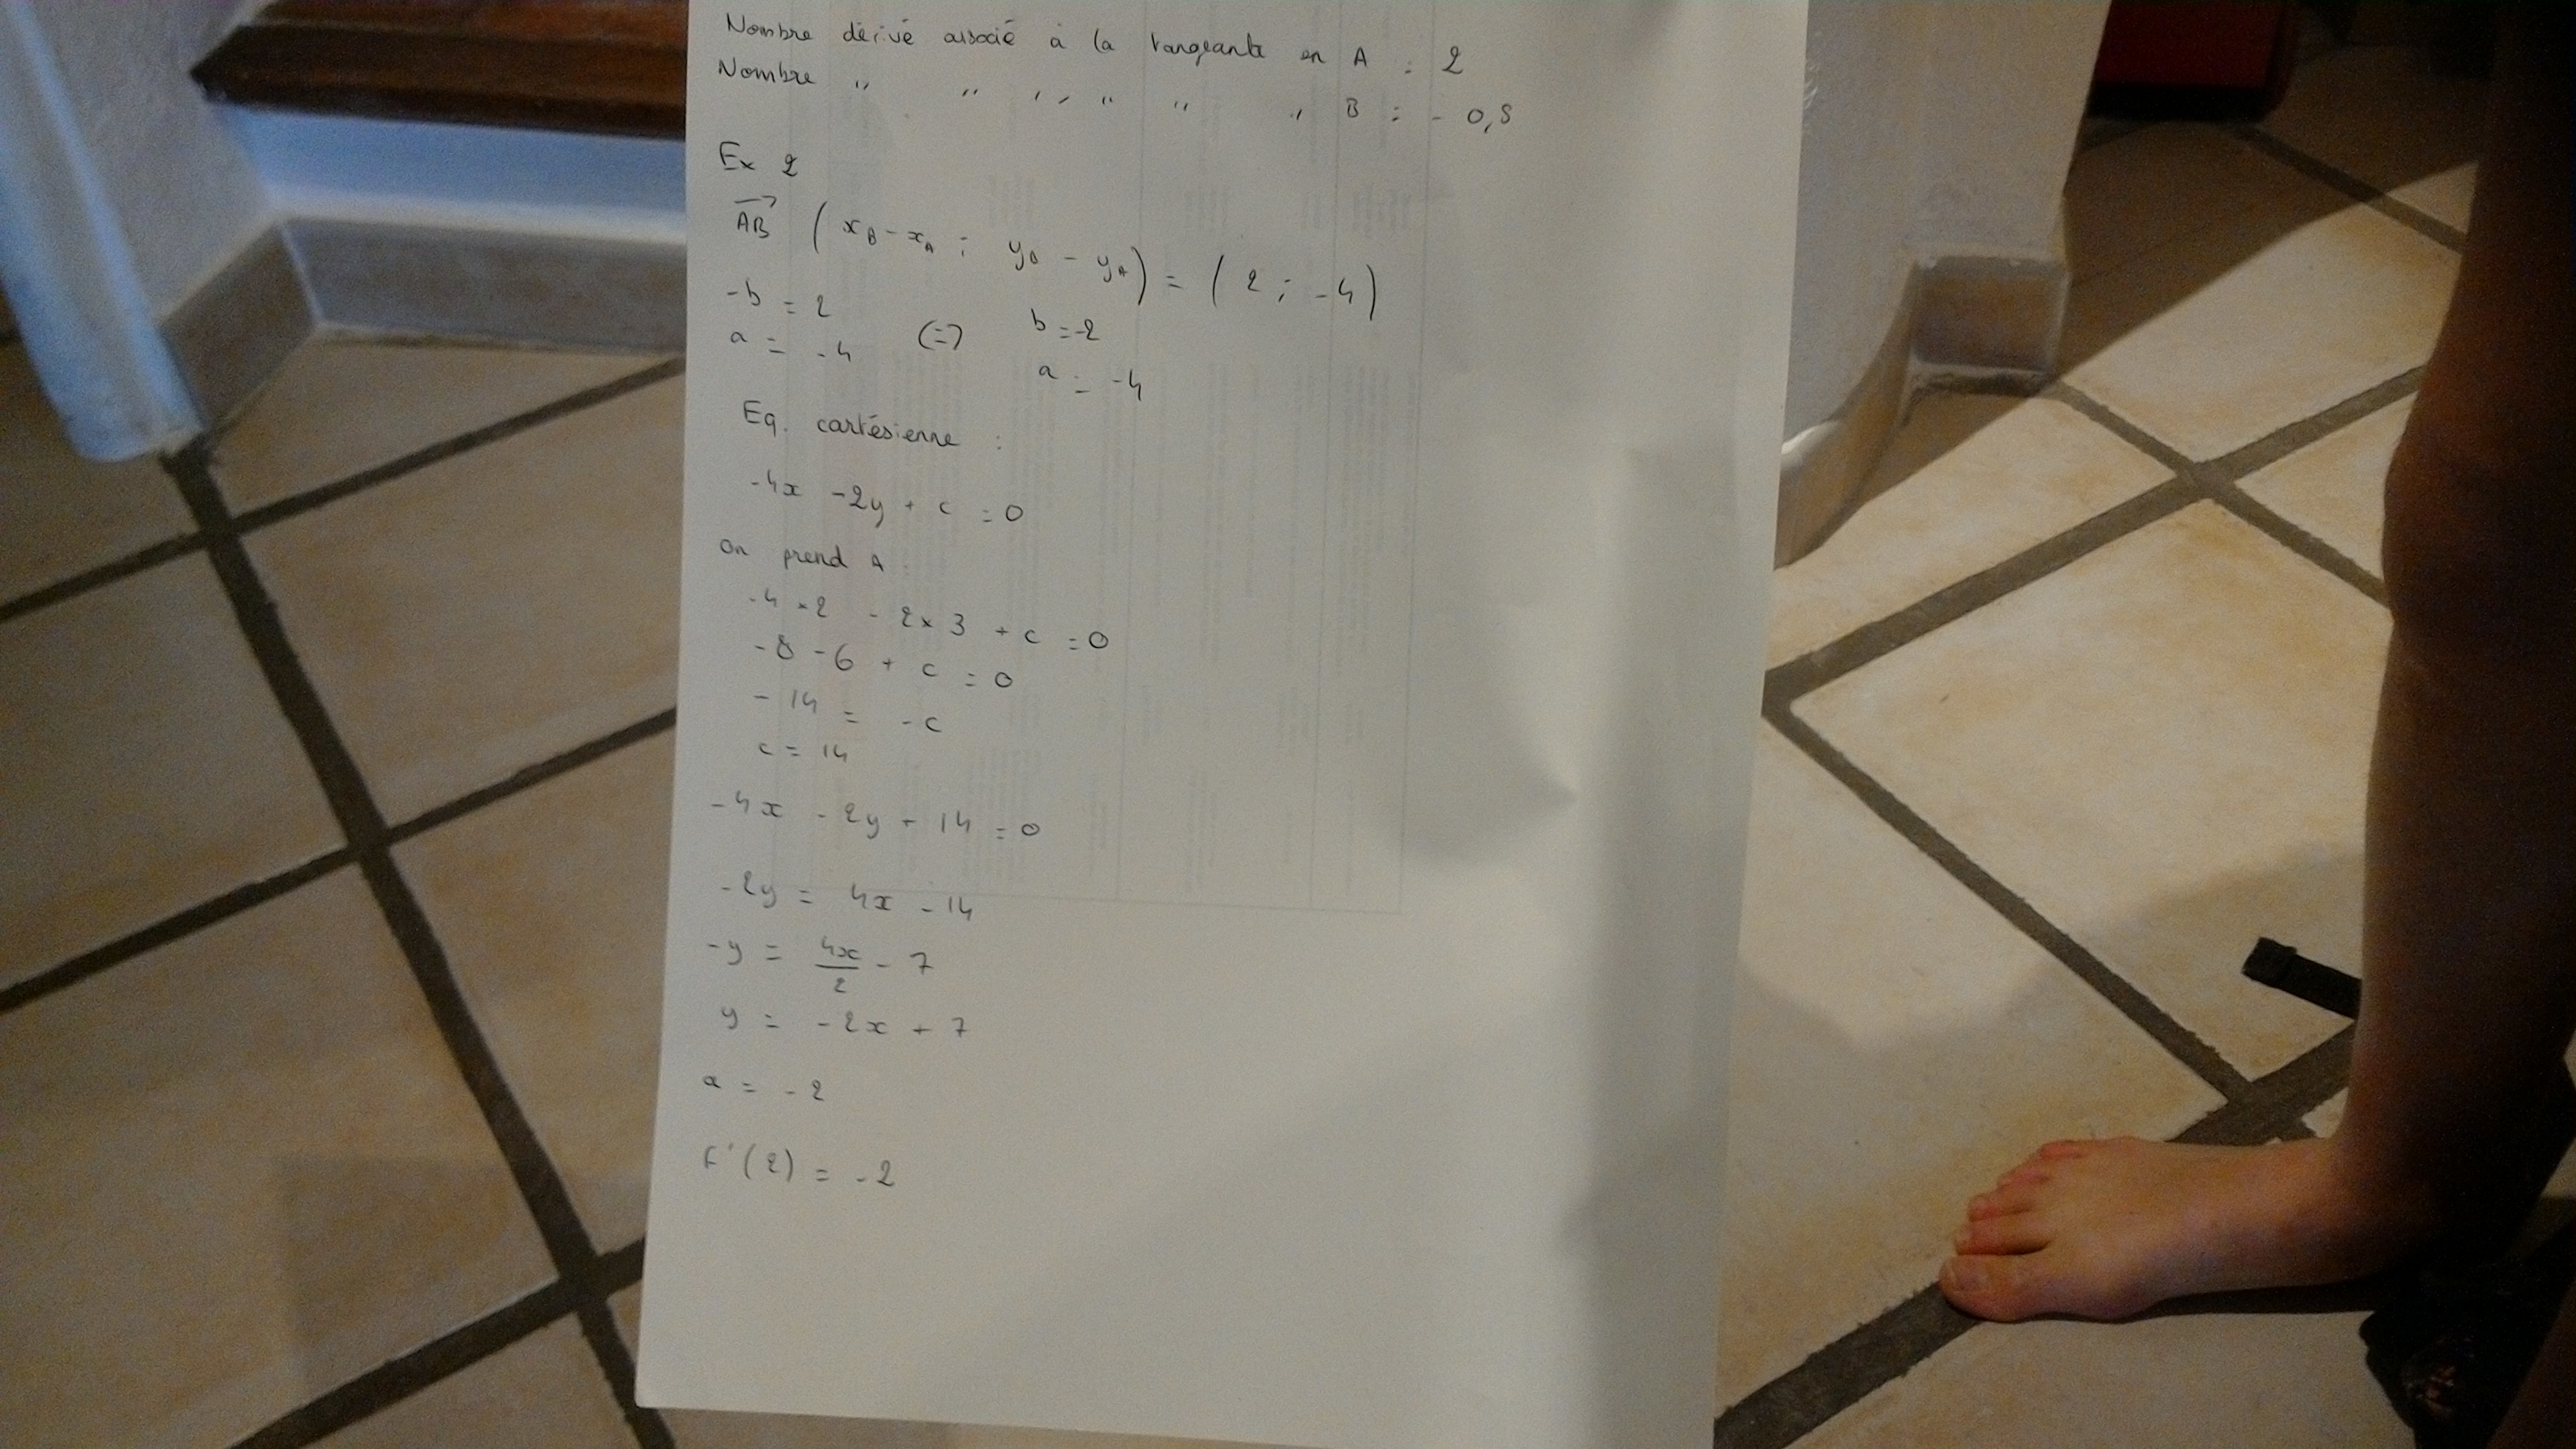 Nombre dérivé associé à la tangeante en A : 2
Nombre " " " " " " B : - 0,5
Ex 2
AB ( xB - xA ; yB - yA ) = ( 2 ; -4 )
-b = 2
a = -4 (=) b = -2
a = -4
Eq. cartésienne :
-4x -2y + c = 0
On prend A
-4 × 2 - 2 × 3 + c = 0
-8 - 6 + c = 0
- 14 = - c
c = 14
-4x - 2y + 14 = 0
-2y = 4x - 14
-y = 4x/2 - 7
y = -2x + 7
a = - 2
f'(2) = -2